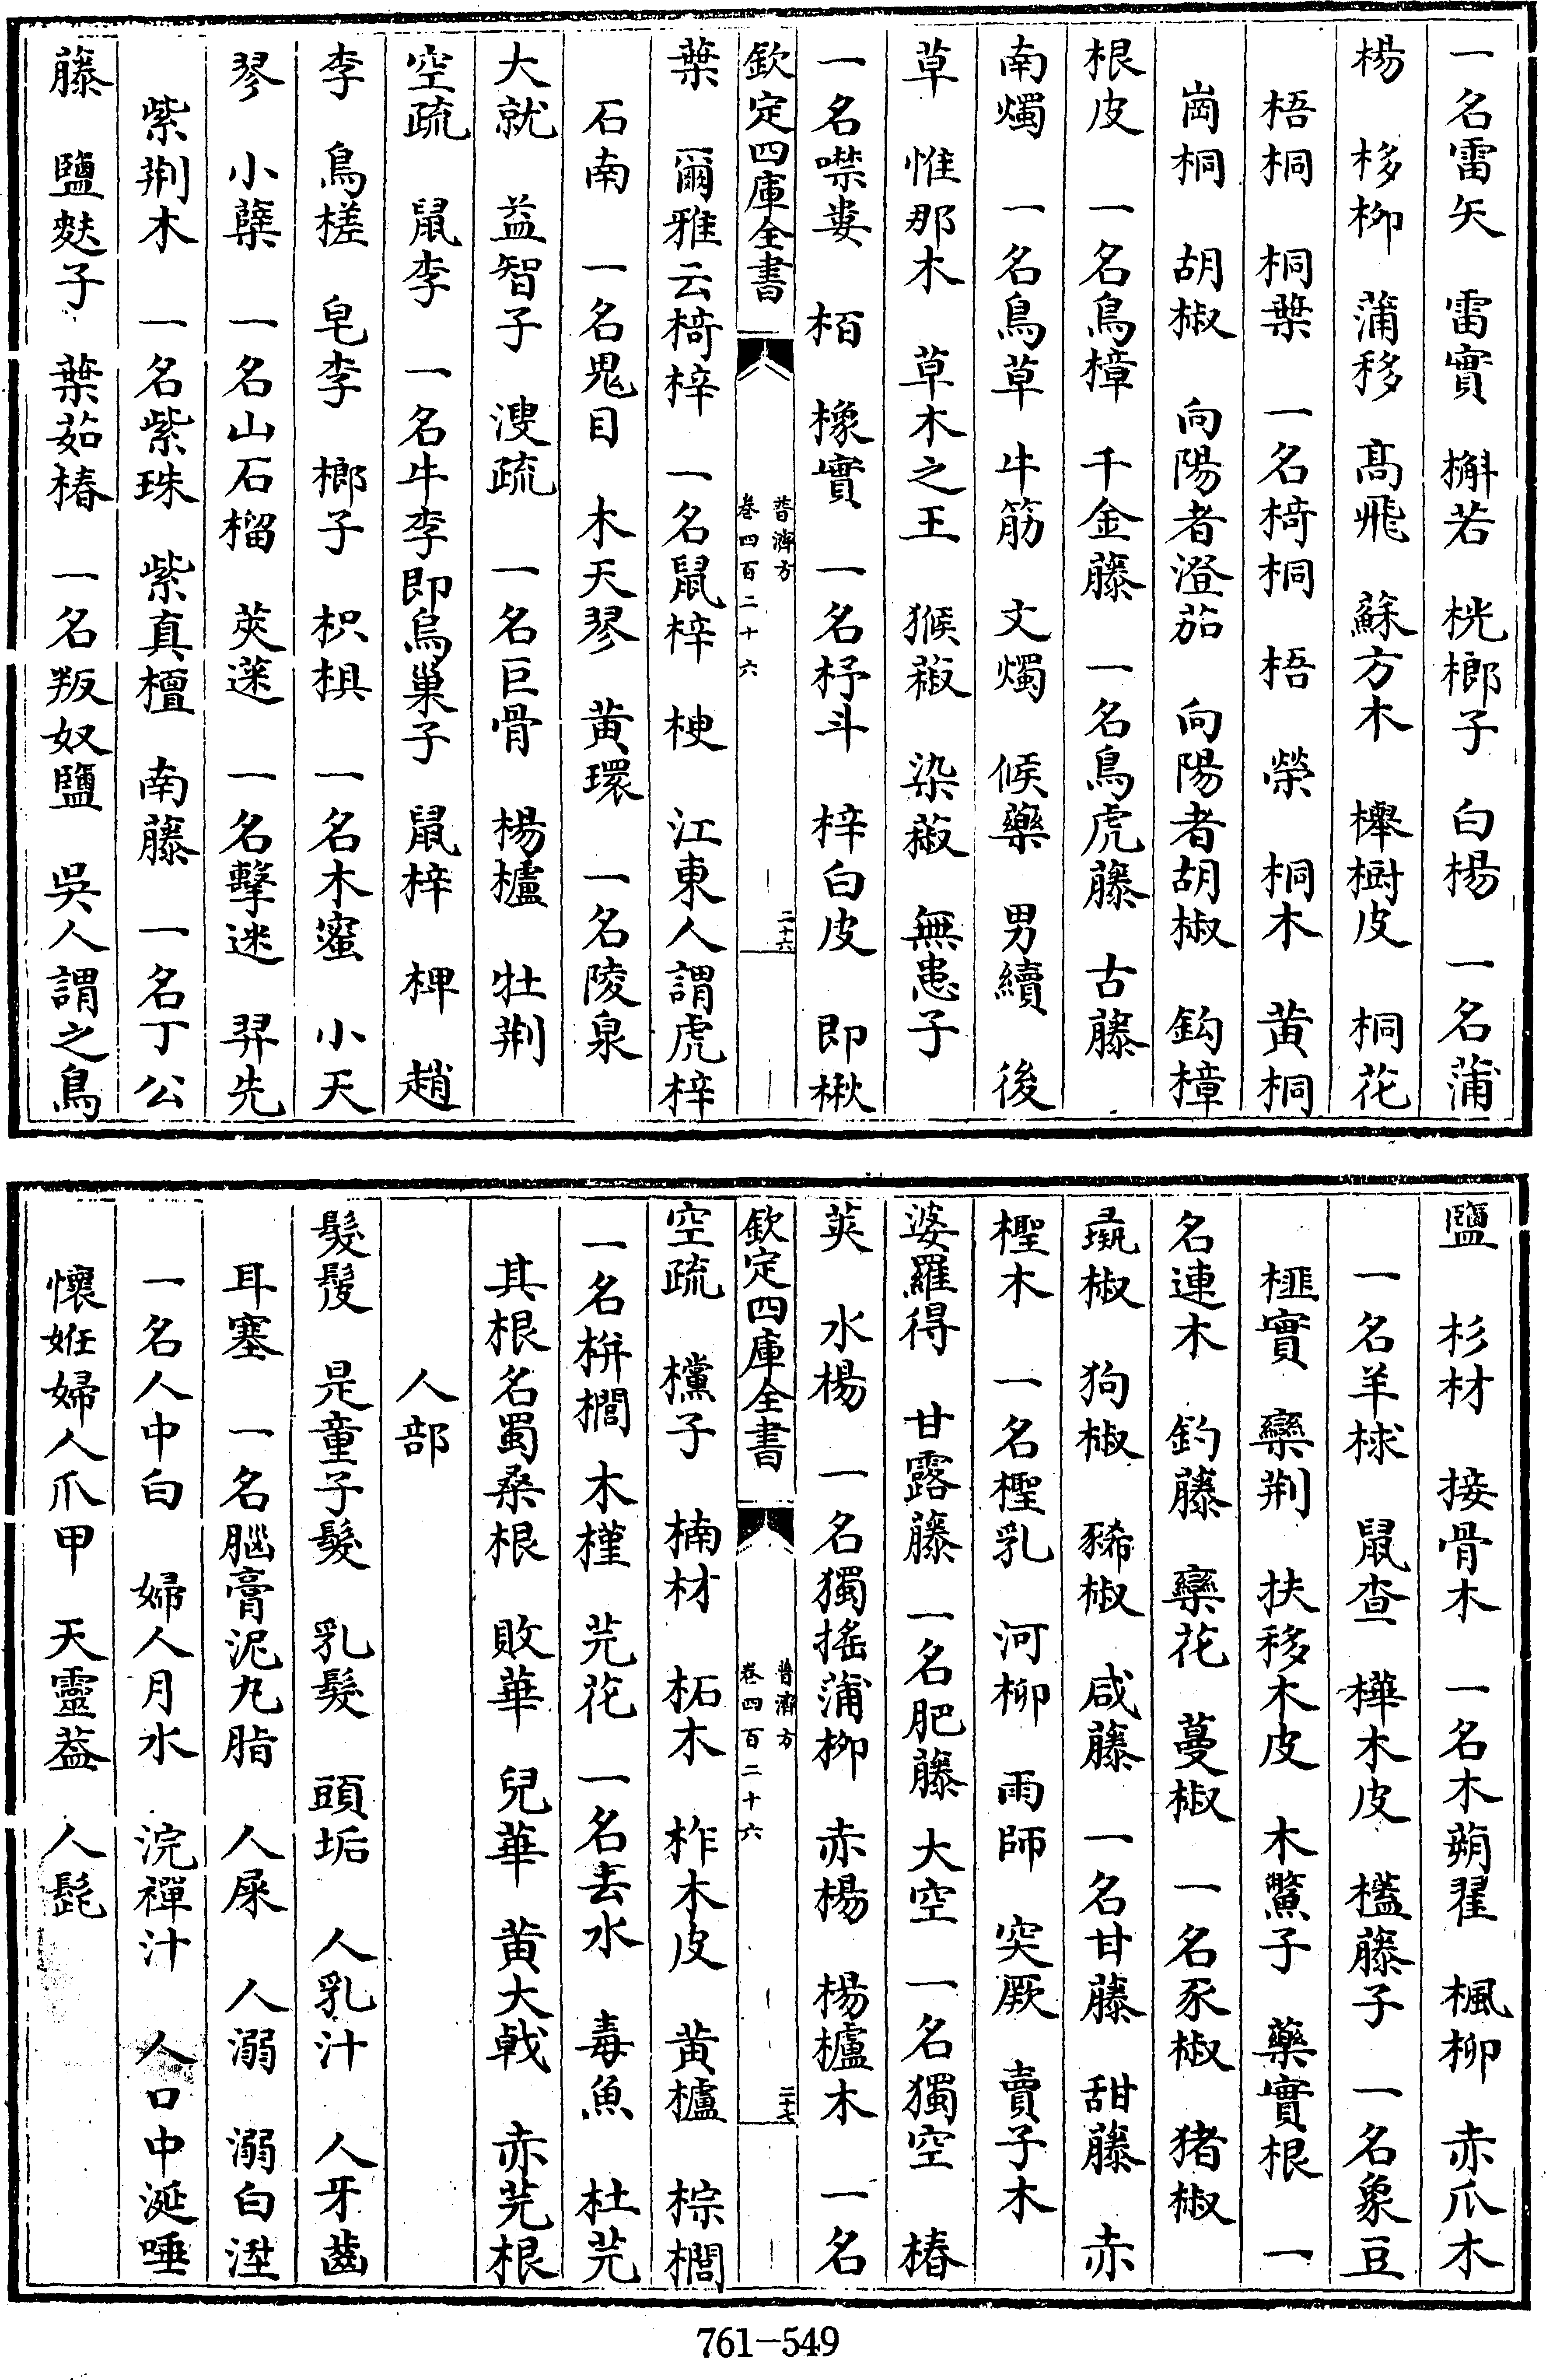 一名雷矢　雷實　槲若　桄榔子　白楊　一名蒲
楊　栘柳　蒲移　髙飛　蘇方木　櫸樹皮　桐花
梧桐　桐葉　一名椅桐　梧　榮　桐木　黄桐
崗桐　胡椒　向陽者澄茄　向陽者胡椒　鈎樟
根皮　一名烏樟　千金藤　一名烏虎藤　古藤
南燭　一名烏草　牛筋　文燭　候藥　男續　後
草　惟那木　草木之王　猴菽　染菽　無患子
一名噤婁　栢　橡實　一名杼斗　梓白皮　即楸
欽定四庫全書
普濟方
卷四百二十六
二十六
葉　爾雅云椅梓　一名鼠梓　楰　江東人謂虎梓
石南　一名鬼目　木天蓼　黄環　一名陵泉
大就　益智子　溲疏　一名巨骨　楊櫨　牡荆
空疏　鼠李　一名牛李即烏巢子　鼠梓　椑　趙
李　烏槎　皂李　榔子　枳椇　一名木蜜　小天
蓼　小蘖　一名山石榴　莢蒾　一名擊迷　羿先
紫荆木　一名紫珠　紫真檀　南藤　一名丁公
藤　鹽麩子　葉茹椿　一名叛奴鹽　吳人謂之烏
鹽　杉材　接骨木　一名木蒴翟　楓柳　赤爪木
一名羊梂　鼠查　樺木皮　㰐藤子　一名象豆
榧實　欒荆　扶移木皮　木鱉子　藥實根　一
名連木　釣藤　欒花　蔓椒　一名豕椒　猪椒
彘椒　狗椒　豨椒　咸藤　一名甘藤　甜藤　赤
檉木　一名檉乳　河柳　雨師　突厥　賣子木
婆羅得　甘露藤　一名肥藤　大空　一名獨空　椿
莢　水楊　一名獨搖蒲柳　赤楊　楊櫨木　一名
欽定四庫全書
普濟方
卷四百二十六
二十七
空疏　欓子　楠材　柘木　柞木皮　黄櫨　棕櫚
一名栟櫚　木槿　芫花　一名去水　毒魚　杜芫
其根名蜀桑根　敗華　兒華　黄大戟　赤芫根
人部
髮髲　是童子髮　乳髮　頭垢　人乳汁　人牙齒
耳塞　一名腦膏泥丸脂　人屎　人溺　溺白湴
一名人中白　婦人月水　浣褌汁　人口中涎唾
懷姙婦人爪甲　天靈葢　人髭
761-549